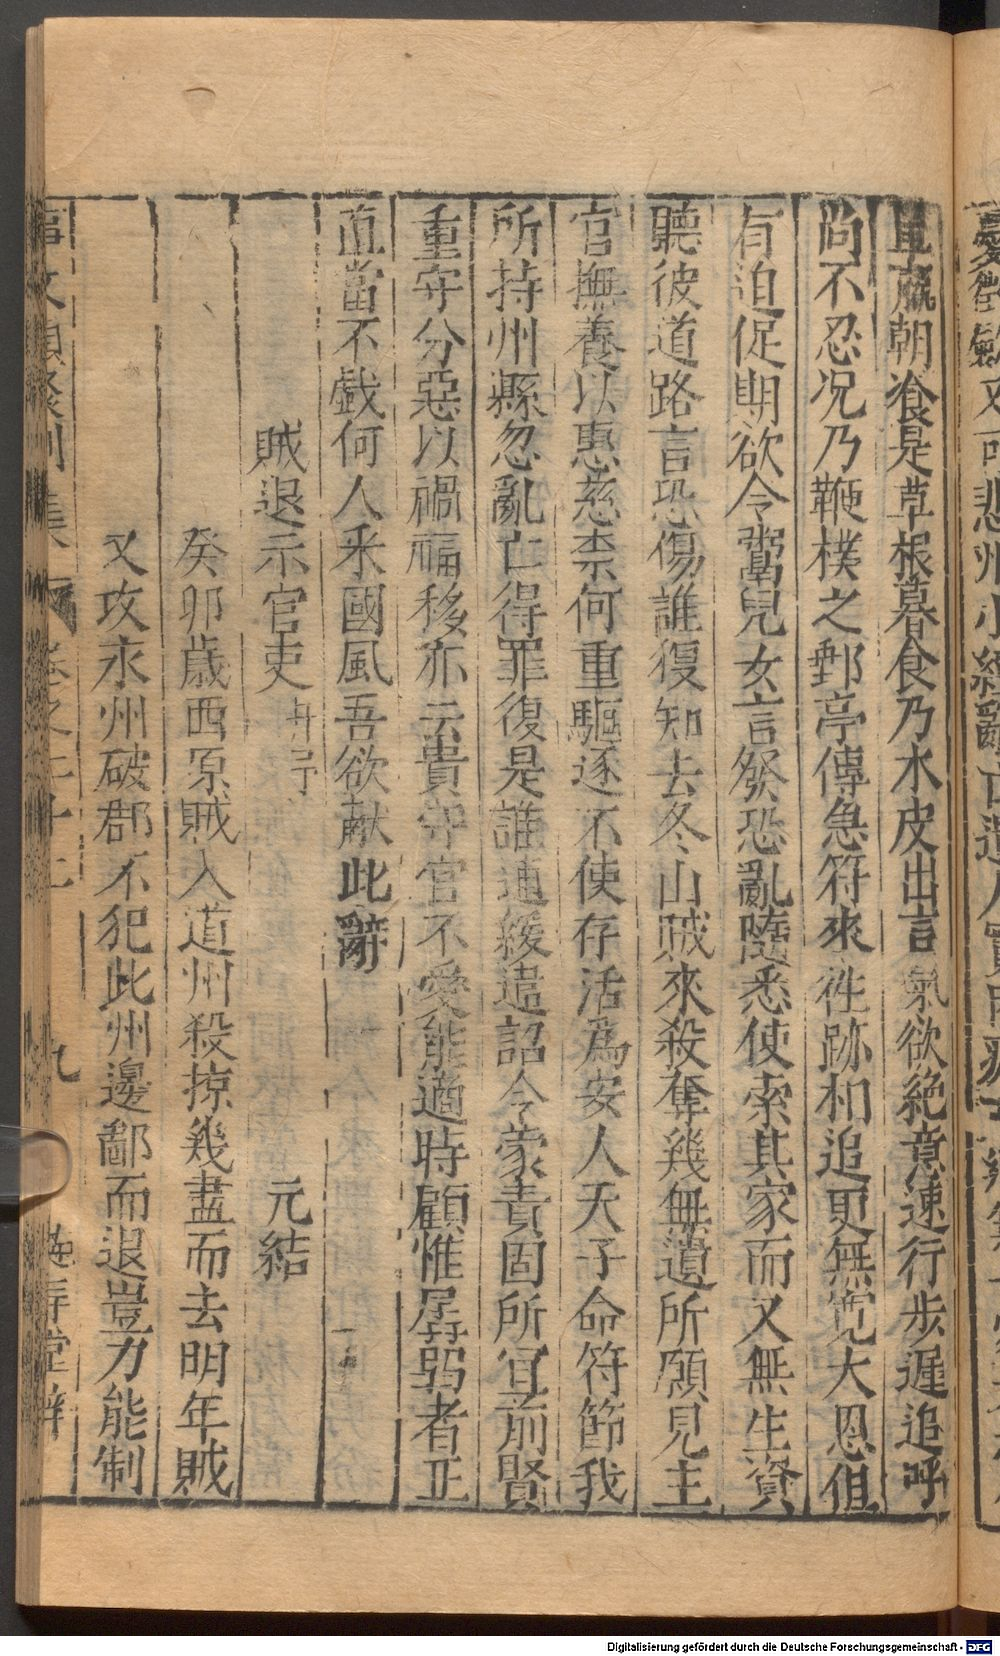 且羸朝飡是草根暮食乃水皮出言氣欲絶意速行步遲追呼
尚不忍况乃鞭撲之郵亭傳急符來徃跡相追更無寛大恩但
有迫促期欲令鬻兒女言發恐亂隨悉使索其家而又無生資
聽彼道路言恐傷誰復知去冬山賊來殺奪幾無遺所願見主
官撫養以惠慈柰何重驅逐不使存活爲安人天子命符節我
所持州縣忽亂亡得罪復是誰逋緩違詔令蒙責固所宜前賢
重守分惡以禍福移亦云貴守官不愛能適時顧惟孱弱者正
直當不戱何人釆國風吾欲献此辭
賊退示官吏 元結
癸卯歳西原賊入道州殺掠幾盡而去明年賊
又攻永州破郡不犯此州邊鄙而退豈力能制
事文類聚別集 卷之二十二 九
Digitalisierung gefördert durch die Deutsche Forschungsgemeinschaft - DFG